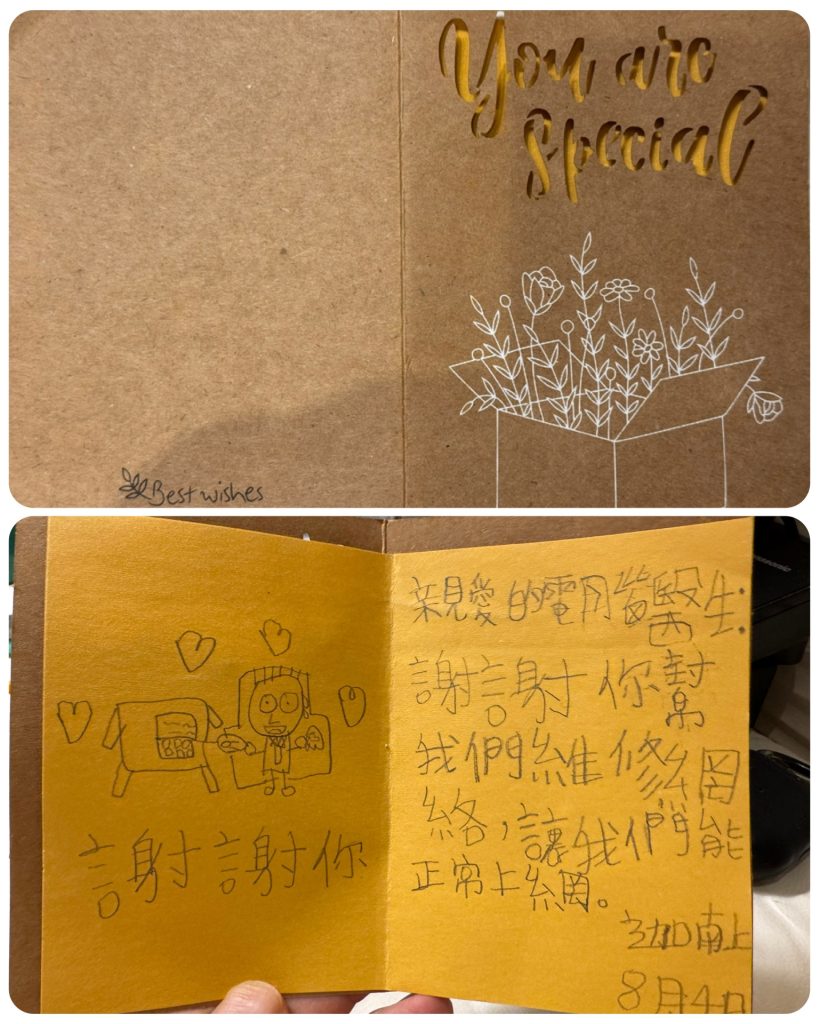 You are
special
Best wishes
謝謝你
親愛的電腦醫生:
謝謝你幫
我們維修網
絡,讓我們能
正常上網。
上
8月4日